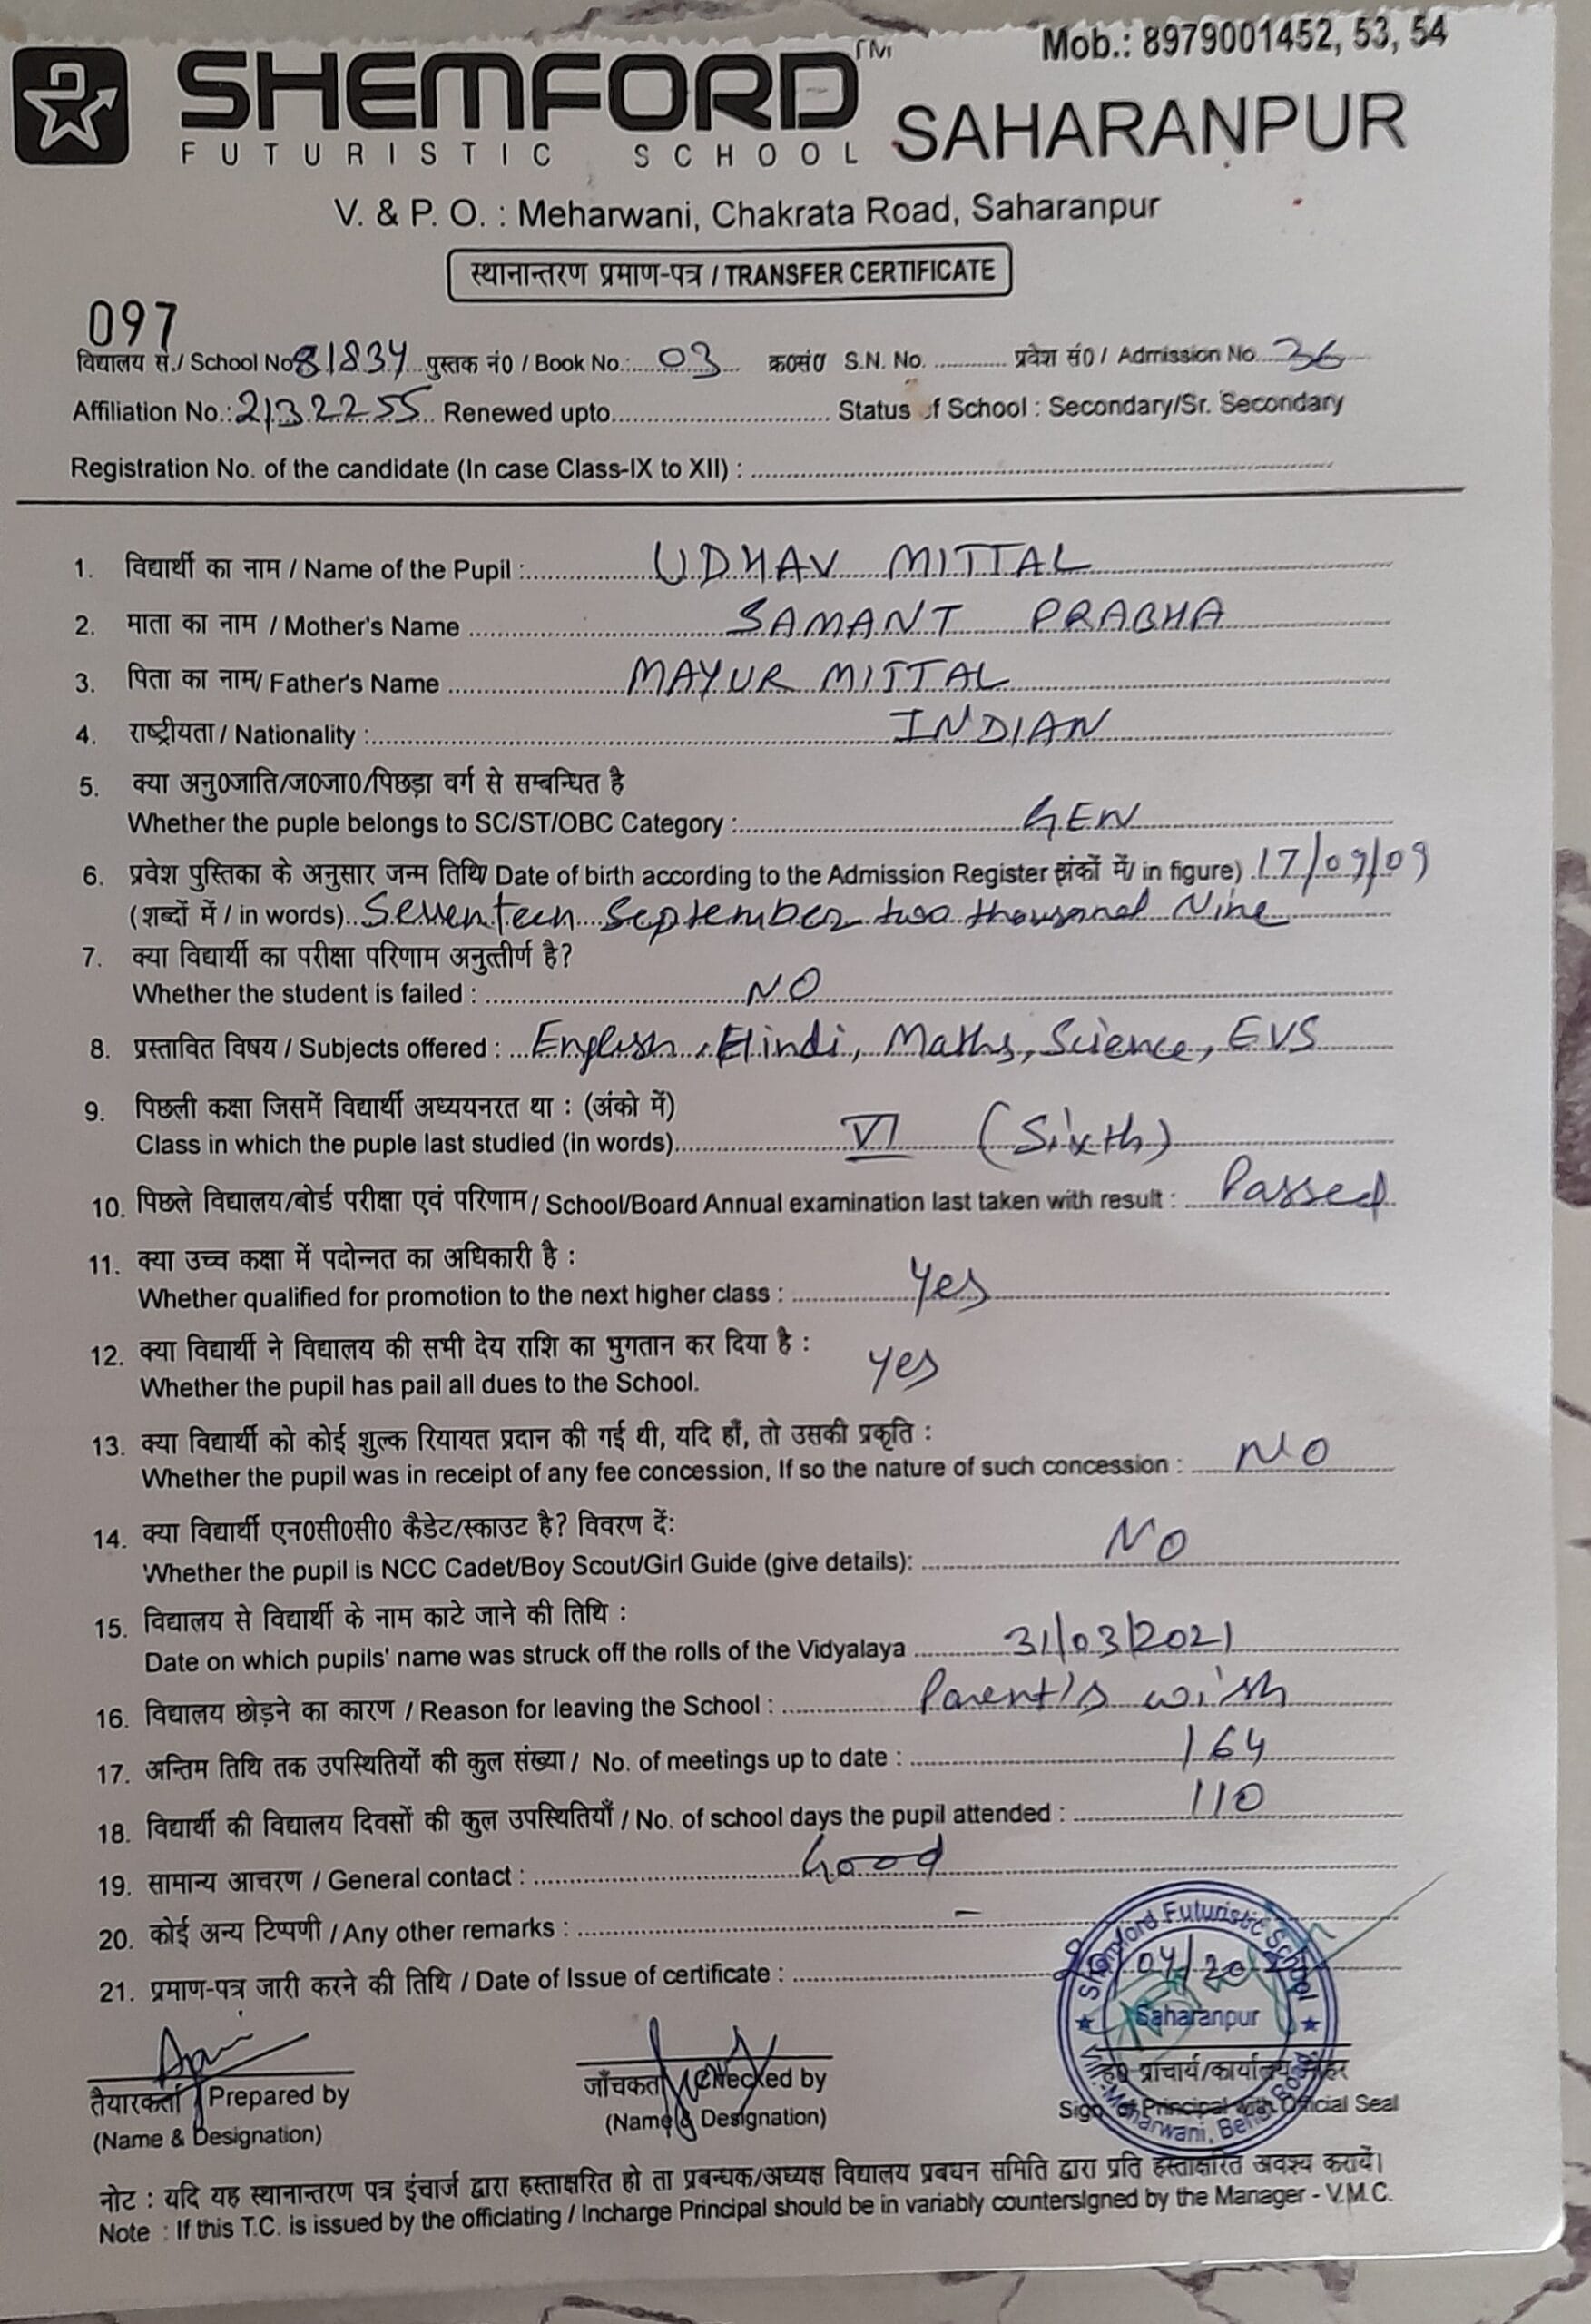 SHEMFORD™
FUTURISTIC SCHOOL
Mob.: 8979001452, 53, 54
SAHARANPUR
V. & P. O. : Meharwani, Chakrata Road, Saharanpur
स्थानान्तरण प्रमाण-पत्र / TRANSFER CERTIFICATE
097
विद्यालय सं./ School No 81834 पुस्तक नं0 / Book No.: 03 क0सं0 S.N. No. प्रवेश सं0 / Admission No. 36
Affiliation No.: 2132255 Renewed upto Status of School : Secondary/Sr. Secondary
Registration No. of the candidate (In case Class-IX to XII) :
1. विद्यार्थी का नाम / Name of the Pupil : UDHAV MITTAL
2. माता का नाम / Mother's Name SAMANT PRABHA
3. पिता का नाम/ Father's Name MAYUR MITTAL
4. राष्ट्रीयता / Nationality : INDIAN
5. क्या अनु0जाति/ज0जा0/पिछड़ा वर्ग से सम्बन्धित है
Whether the puple belongs to SC/ST/OBC Category : GEN
6. प्रवेश पुस्तिका के अनुसार जन्म तिथि/ Date of birth according to the Admission Register (अंकों में/ in figure) 17/09/09
(शब्दों में / in words) Seventeen September two thousand Nine
7. क्या विद्यार्थी का परीक्षा परिणाम अनुत्तीर्ण है?
Whether the student is failed : NO
8. प्रस्तावित विषय / Subjects offered : English, Hindi, Maths, Science, EVS
9. पिछली कक्षा जिसमें विद्यार्थी अध्ययनरत था : (अंको में)
Class in which the puple last studied (in words) VI (Sixth)
10. पिछले विद्यालय/बोर्ड परीक्षा एवं परिणाम / School/Board Annual examination last taken with result : Passed
11. क्या उच्च कक्षा में पदोन्नत का अधिकारी है :
Whether qualified for promotion to the next higher class : Yes
12. क्या विद्यार्थी ने विद्यालय की सभी देय राशि का भुगतान कर दिया है :
Whether the pupil has pail all dues to the School. Yes
13. क्या विद्यार्थी को कोई शुल्क रियायत प्रदान की गई थी, यदि हाँ, तो उसकी प्रकृति :
Whether the pupil was in receipt of any fee concession, If so the nature of such concession : NO
14. क्या विद्यार्थी एन0सी0सी0 कैडेट/स्काउट है? विवरण दें:
Whether the pupil is NCC Cadet/Boy Scout/Girl Guide (give details): NO
15. विद्यालय से विद्यार्थी के नाम काटे जाने की तिथि :
Date on which pupils' name was struck off the rolls of the Vidyalaya 31/03/2021
16. विद्यालय छोड़ने का कारण / Reason for leaving the School : Parent's wish
17. अन्तिम तिथि तक उपस्थितियों की कुल संख्या / No. of meetings up to date : 164
18. विद्यार्थी की विद्यालय दिवसों की कुल उपस्थितियाँ / No. of school days the pupil attended : 110
19. सामान्य आचरण / General contact : Good
20. कोई अन्य टिप्पणी / Any other remarks : –
21. प्रमाण-पत्र जारी करने की तिथि / Date of Issue of certificate :
Shemford Futuristic School
Saharanpur
तैयारकर्ता / Prepared by
(Name & Designation)
जाँचकर्ता / Checked by
(Name & Designation)
ह0 प्राचार्य/कार्यालय मोहर
Sign. of Principal with Official Seal
नोट : यदि यह स्थानान्तरण पत्र इंचार्ज द्वारा हस्ताक्षरित हो ता प्रबन्धक/अध्यक्ष विद्यालय प्रबधन समिति द्वारा प्रति हस्ताक्षरित अवश्य करायें।
Note : If this T.C. is issued by the officiating / Incharge Principal should be in variably countersigned by the Manager - V.M.C.